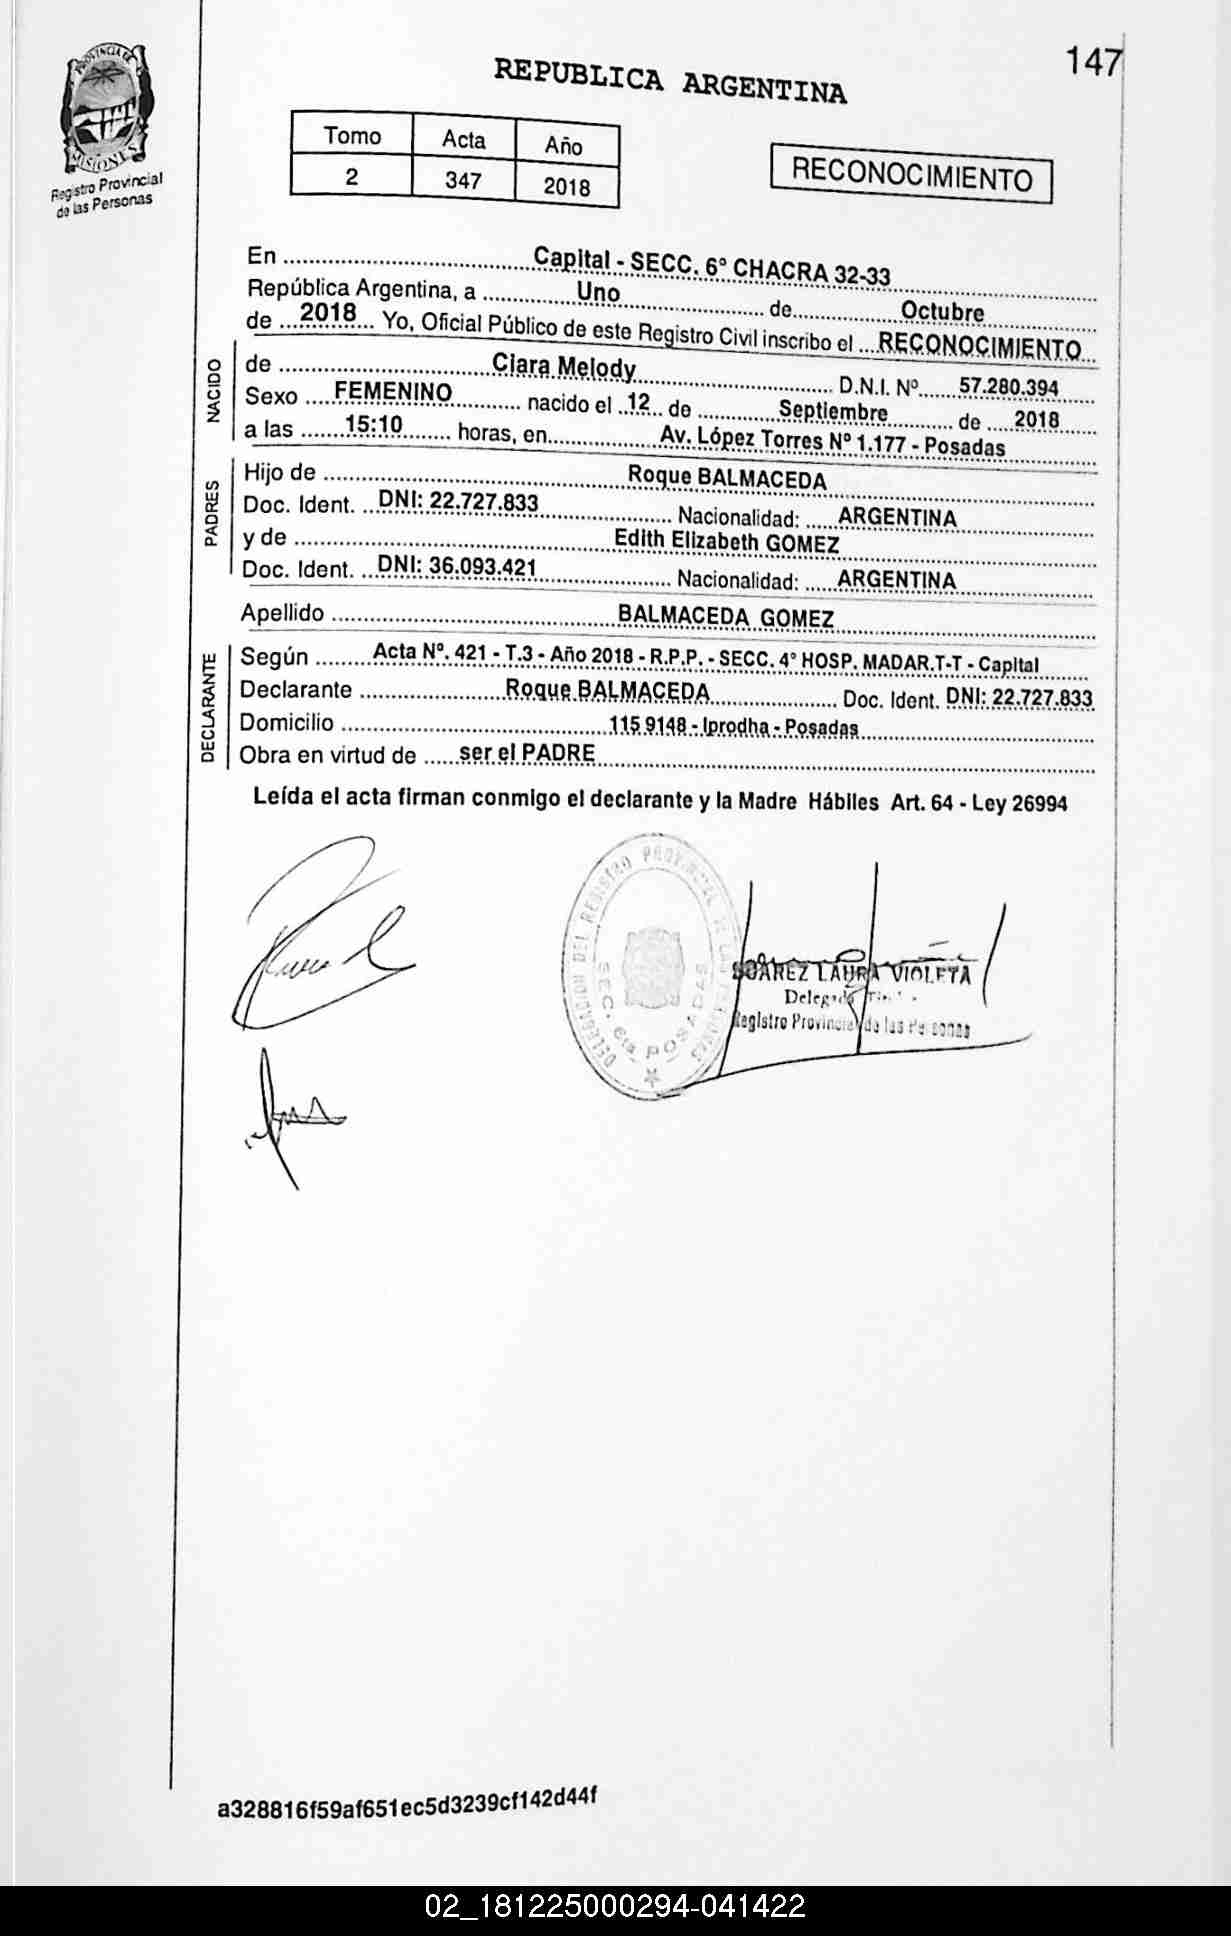 147
PROVINCIA DE
MISIONES
Registro Provincial
de las Personas
REPUBLICA ARGENTINA
Tomo Acta Año
2 347 2018
RECONOCIMIENTO
En Capital - SECC. 6° CHACRA 32-33
República Argentina, a Uno de Octubre
de 2018 Yo, Oficial Público de este Registro Civil inscribo el RECONOCIMIENTO
NACIDO
de Ciara Melody D.N.I. Nº 57.280.394
Sexo FEMENINO nacido el 12 de Septiembre de 2018
a las 15:10 horas, en Av. López Torres Nº 1.177 - Posadas
PADRES
Hijo de Roque BALMACEDA
Doc. Ident. DNI: 22.727.833 Nacionalidad: ARGENTINA
y de Edith Elizabeth GOMEZ
Doc. Ident. DNI: 36.093.421 Nacionalidad: ARGENTINA
Apellido BALMACEDA GOMEZ
DECLARANTE
Según Acta Nº. 421 - T.3 - Año 2018 - R.P.P. - SECC. 4° HOSP. MADAR.T-T - Capital
Declarante Roque BALMACEDA Doc. Ident. DNI: 22.727.833
Domicilio 115 9148 - Iprodha - Posadas
Obra en virtud de ser el PADRE
Leída el acta firman conmigo el declarante y la Madre Hábiles Art. 64 - Ley 26994
DELEGACION DEL REGISTRO PROVINCIAL DE LAS PERSONAS
SEC. 6ta POSADAS
SUAREZ LAURA VIOLETA
Registro Provincial de las Personas
a328816f59af651ec5d3239cf142d44f
02_181225000294-041422